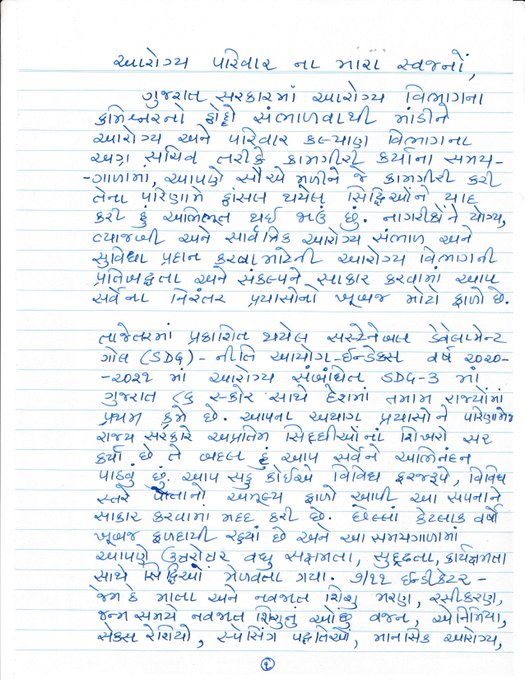 આરોગ્ય પરિવાર ના મારા સ્વજનો,
ગુજરાત સરકારમાં આરોગ્ય વિભાગના
કમિશ્નરનો હોદ્દો સંભાળવાથી માંડીને
આરોગ્ય અને પરિવાર કલ્યાણ વિભાગના
અગ્ર સચિવ તરીકે કામગીરી કર્યાના સમય-
-ગાળામાં, આપણે સૌએ મળીને જે કામગીરી કરી
તેના પરિણામે હાંસલ થયેલ સિદ્ધિઓને યાદ
કરી હું અભિભૂત થઈ જાઉં છું. નાગરીકોને યોગ્ય,
વ્યાજબી અને સાર્વત્રિક આરોગ્ય સંભાળ અને
સુવિધા પ્રદાન કરવા માટેની આરોગ્ય વિભાગની
પ્રતિબદ્ધતા અને સંકલ્પને સાકાર કરવામાં આપ
સર્વેના નિરંતર પ્રયાસોનો ખૂબજ મોટો ફાળો છે.
તાજેતરમાં પ્રકાશિત થયેલ સસ્ટેનેબલ ડેવેલપમેન્ટ
ગોલ (SDG) - નીતિ આયોગ-ઈન્ડેક્સ વર્ષ ૨૦૨૦-
-૨૦૨૧ માં આરોગ્ય સંબંધિત SDG-3 માં
ગુજરાત ૮૬ સ્કોર સાથે દેશમાં તમામ રાજ્યોમાં
પ્રથમ ક્રમે છે. આપના અથાગ પ્રયાસોને પરિણામે જ
રાજ્ય સરકારે અપ્રતિમ સિદ્ધીઓનાં શિખરો સર
કર્યા છે તે બદલ હું આપ સર્વેને અભિનંદન
પાઠવું છું. આપ સહુ કોઈએ વિવિધ ફરજરૂપે, વિવિધ
સ્તરે પોતાનો અમૂલ્ય ફાળો આપી આ સપનાને
સાકાર કરવામાં મદદ કરી છે. છેલ્લાં કેટલાક વર્ષો
ખૂબજ ફળદાયી રહ્યાં છે અને આ સમયગાળામાં
આપણે ઉત્તરોતર વધુ સક્ષમતા, સુદૃઢતા, કાર્યક્ષમતા
સાથે સિદ્ધિઓ મેળવતા ગયા. ૭/૧૧ ઈન્ડીકેટર -
જેમ કે માતા અને નવજાત શિશુ મરણ, રસીકરણ,
જન્મ સમયે નવજાત શિશુનું ઓછું વજન, એનિમિયા,
સેક્સ રેશિયો, સ્પેસિંગ પદ્ધતિઓ, માનસિક આરોગ્ય,
૧